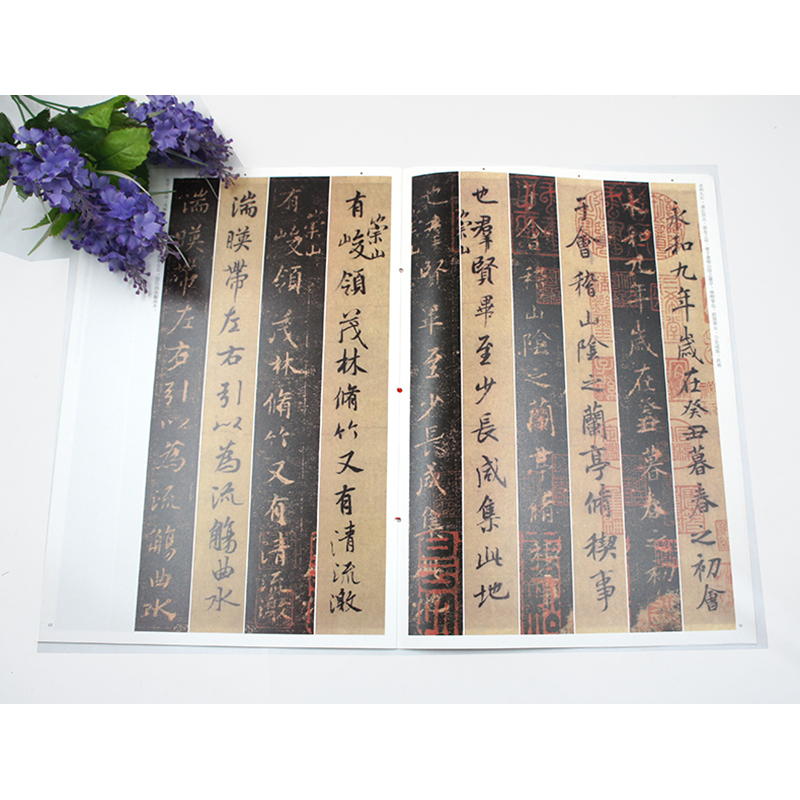 永和九年歲在癸丑暮春之初會
永和九年歲在癸丑暮春之初
于會稽山陰之蘭亭脩稧事
會稽山陰之蘭亭脩稧
也羣賢畢至少長咸集此地
崇山
也羣賢畢至少長咸集此地
有崇山峻領茂林脩竹又有清流激
有崇山峻領茂林脩竹又有清流激
湍暎帶左右引以為流觴曲水
湍暎帶左右引以為流觴曲水